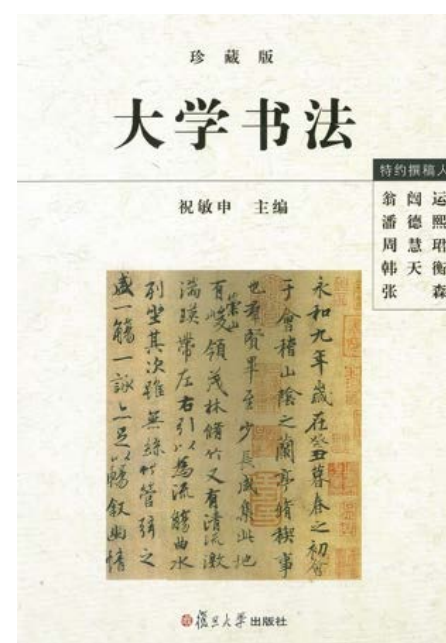 珍藏版
大学书法
祝敏申 主编
特约撰稿人
翁闿运
潘德熙
周慧珺
韩天衡
张森
永和九年歲在癸丑暮春之初會
于會稽山陰之蘭亭脩稧事
也羣賢畢至少長咸集此地
有崇山峻領茂林脩竹又有清流激
湍暎帶左右引以為流觴曲水
列坐其次雖無絲竹管弦之
盛一觴一詠亦足以暢敘幽情
復旦大學出版社